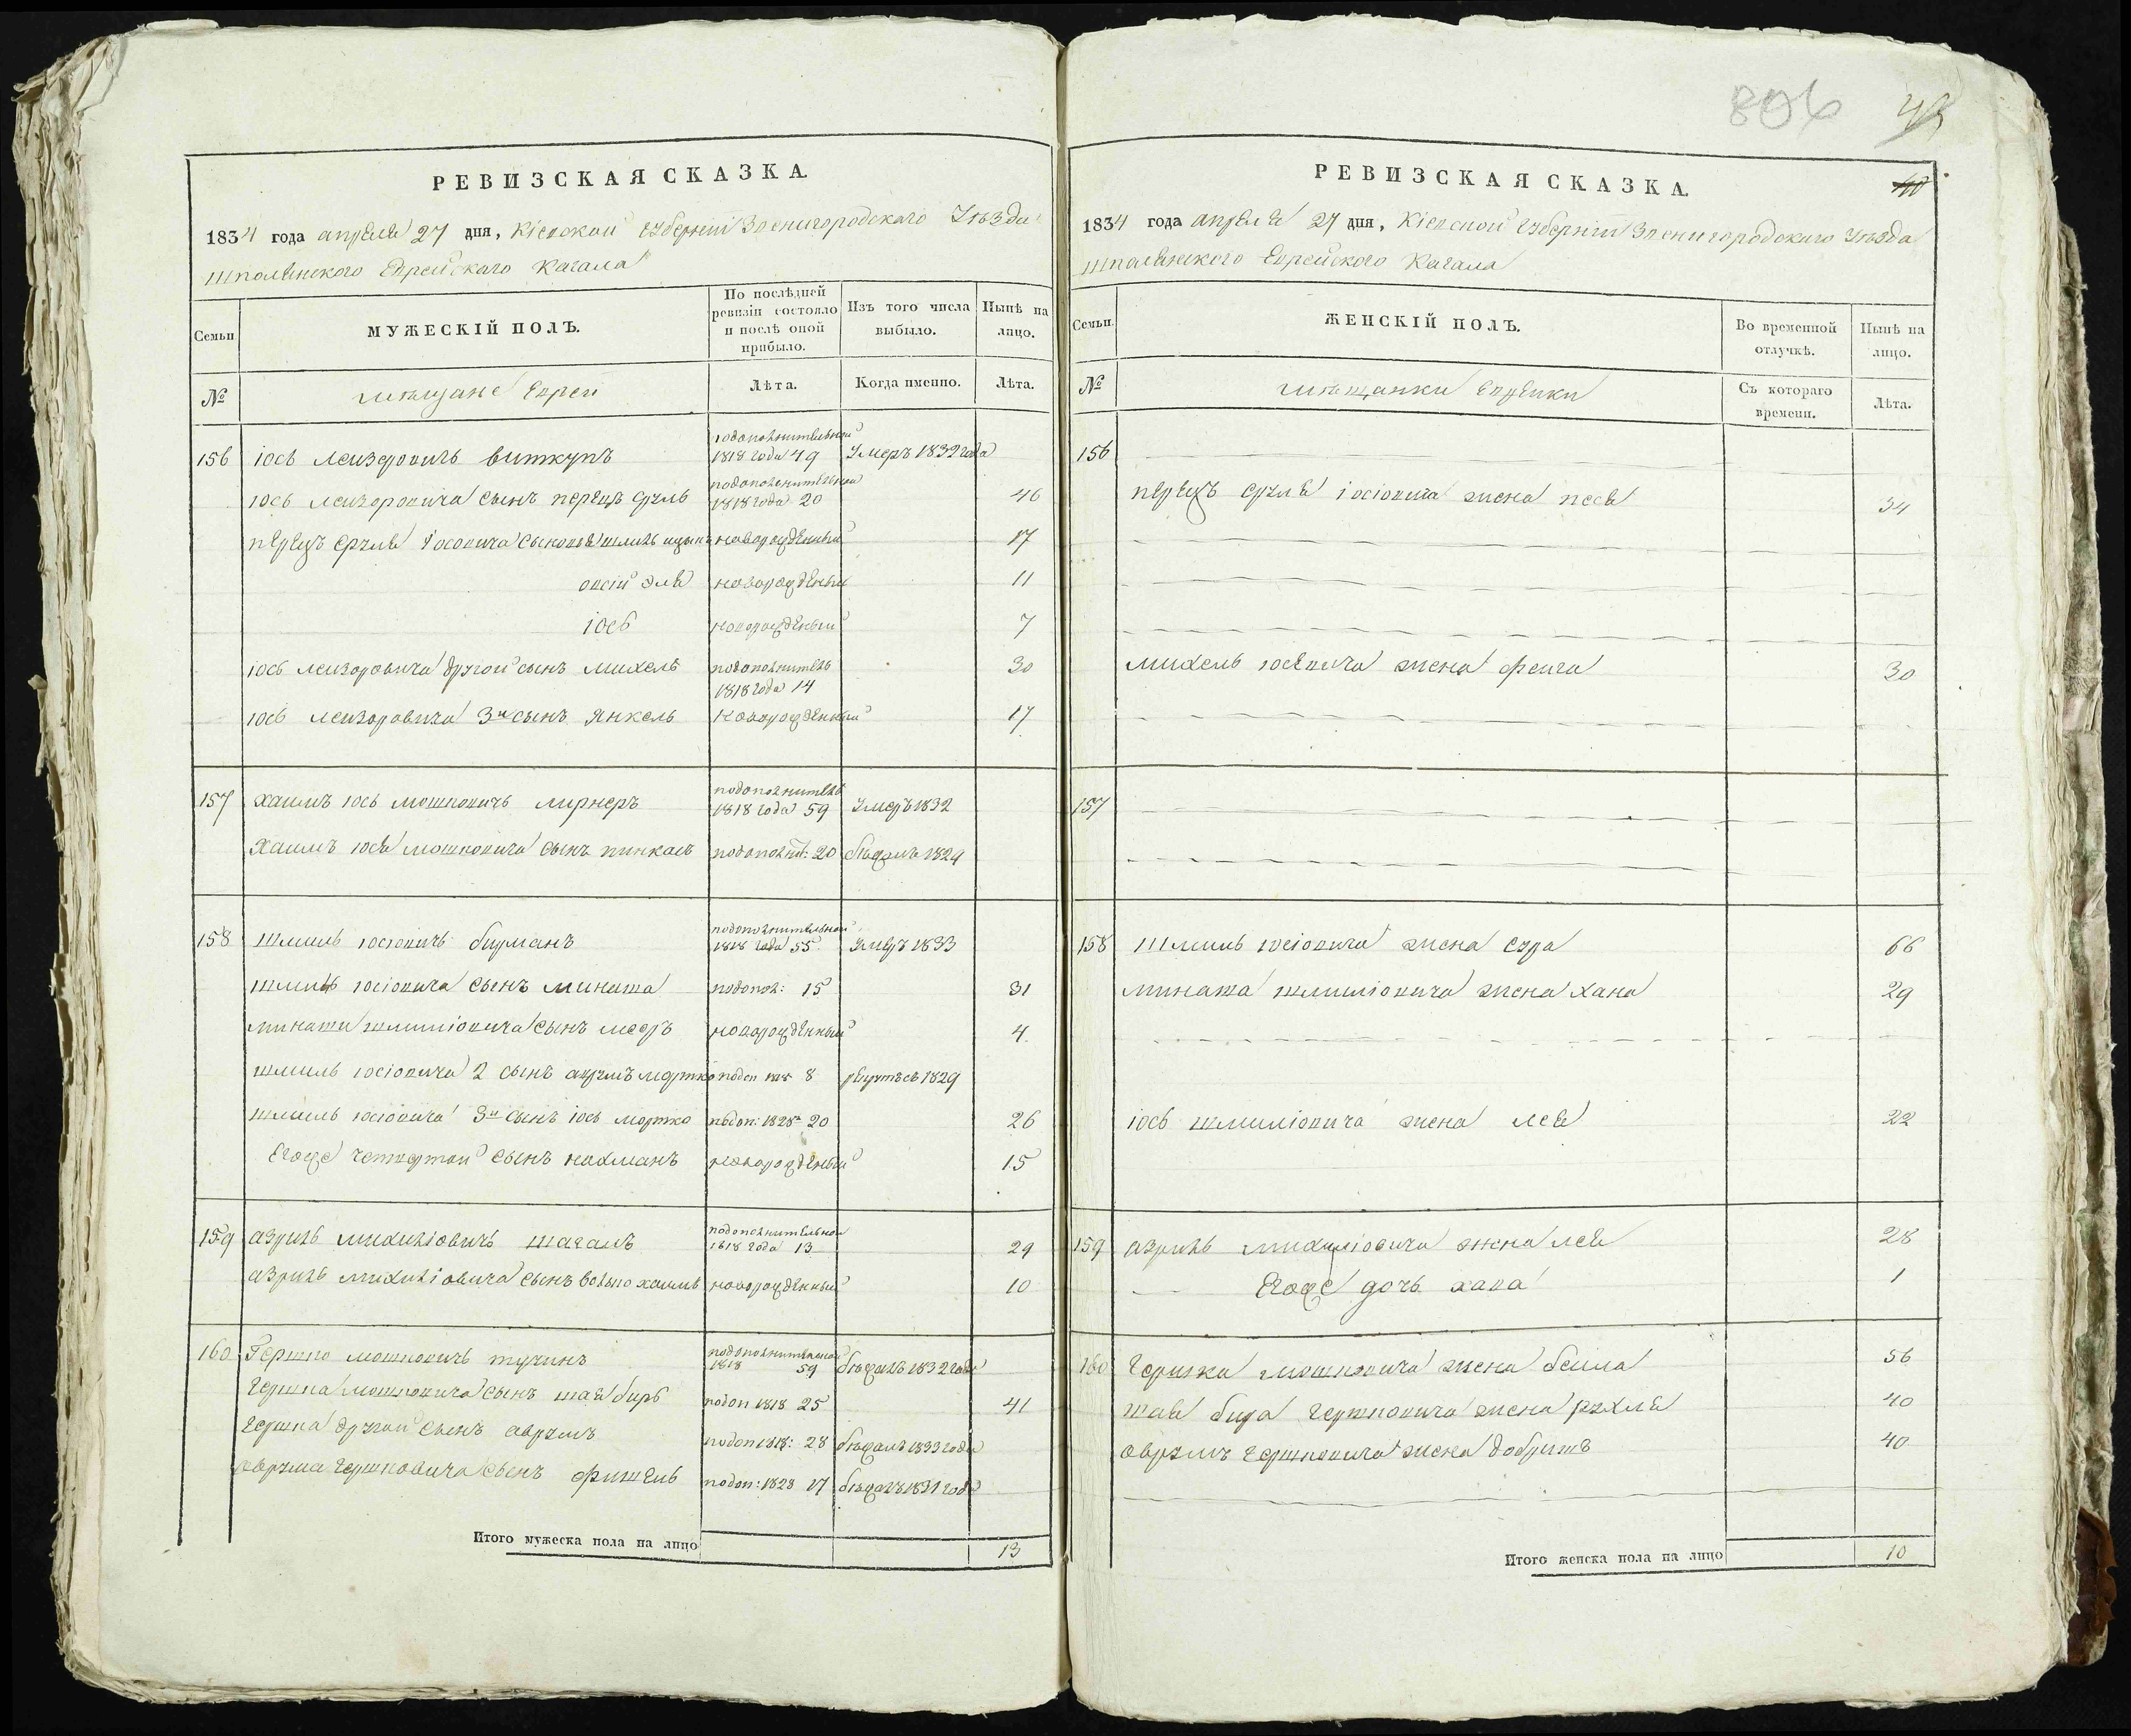 806
РЕВИЗСКАЯ СКАЗКА.
1834 года апреля 27 дня, Кіевской Губерніи Звенигородскаго Уѣзда
шполянского Еврейскаго Кагала
Семьи
МУЖЕСКІЙ ПОЛЪ.
По послѣдней ревизіи состояло и послѣ оной прибыло.
Изъ того числа выбыло.
Нынѣ на лицо.
№
мѣщане Евреи
Лѣта.
Когда именно.
Лѣта.
156 іось Лейзеровичъ виткупъ подополнительной 1818 года 49 Умеръ 1832 года
іось лейзоровича сынъ перецъ сруль подополнительной 1818 года 20 46
перецъ сруля іосовича сыновья шмиль ицыкъ новорожденный 17
овсій эля новорожденый 11
іось новорожденый 7
іось лейзоровича другой сынъ михель подополнитель 1818 года 14 30
іось лейзоровича 3й сынъ Янкель Новорожденный 17
157 хаимъ іось мошковичъ лирнеръ подополнитель 1818 года 59 Умеръ 1832
Хаимъ іося мошковича сынъ пинкасъ подополнит: 20 бѣжалъ 1829
158 шмиль іосіовичъ бирманъ подополнительной 1818 года 55 Умеръ 1833
шмиль іосіовича сынъ минаша подопол: 15 31
минаши шмиліовича сынъ мееръ новорожденный 4
шмиль іосіовича 2 сынъ аврумъ мортко подоп 8 рекрутъ съ 1829
шмиль іосіовича 3й сынъ іось мортко подоп: 1828 20 26
Егоже четвертой сынъ нахманъ новорожденый 15
159 азриль михиліовичъ шагалъ подополнительной 1818 года 13 29
азриль михиліовича сынъ вольно хаимъ новорожденный 10
160 Гершко мошковичъ тучинъ подополнительной 1818 59 бѣжалъ 1832 года
гершка мошковича сынъ шая бирь подоп 1818 25 41
гершка другой сынъ аврумъ подоп 1818: 28 бѣжалъ 1833 года
аврума гершковича сынъ фишель подоп: 1828 17 бѣжалъ 1831 года
Итого мужеска пола на лицо 13
РЕВИЗСКАЯ СКАЗКА.
1834 года апреля 27 дня, Кіевской Губерніи Звенигородскаго Уѣзда
шполянского Еврейского Кагала
Семьи.
ЖЕНСКІЙ ПОЛЪ.
Во временной отлучкѣ.
Нынѣ на лицо.
№
мѣщанки Еврейки
Съ котораго времени.
Лѣта.
156
перецъ сруля іосіовича жена песя 34
михель іосевича жена фейга 30
157
158 Шмиль іосіовича жена сура 66
минаша шмиліовича жена хана 29
іось шмиліовича жена лея 22
159 азриль михиліовича жена лея 28
Егоже дочь хава 1
160 гершка мошковича жена бейла 56
шая бира гершковича жена рухля 40
аврумъ гершковича жена добришъ 40
Итого женска пола на лицо 10